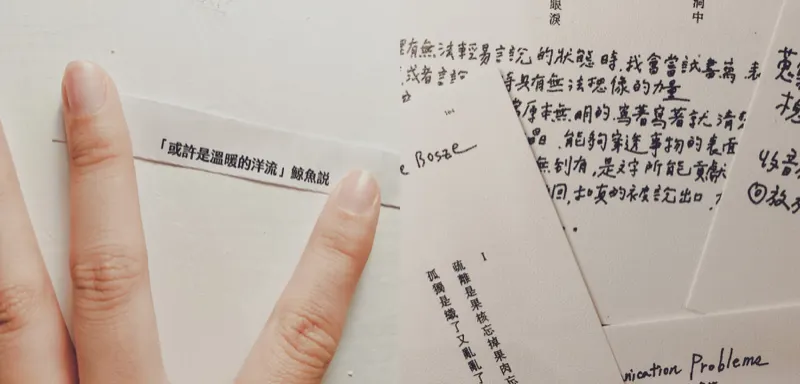 「或許是溫暖的洋流」鯨魚說
眼淚
洞中
有無法輕易言說的狀態時，我會嘗試書寫
或者言說
具有無法想像的力量
原本無明的，寫著寫著就清
能夠穿透事物的表面
無到有，是文字所能貢獻
回，如真的被說出口，
e Bosze
1
疏離是果核忘掉果肉忘
孤獨是織了又亂亂了
收音
回放
nication Problems